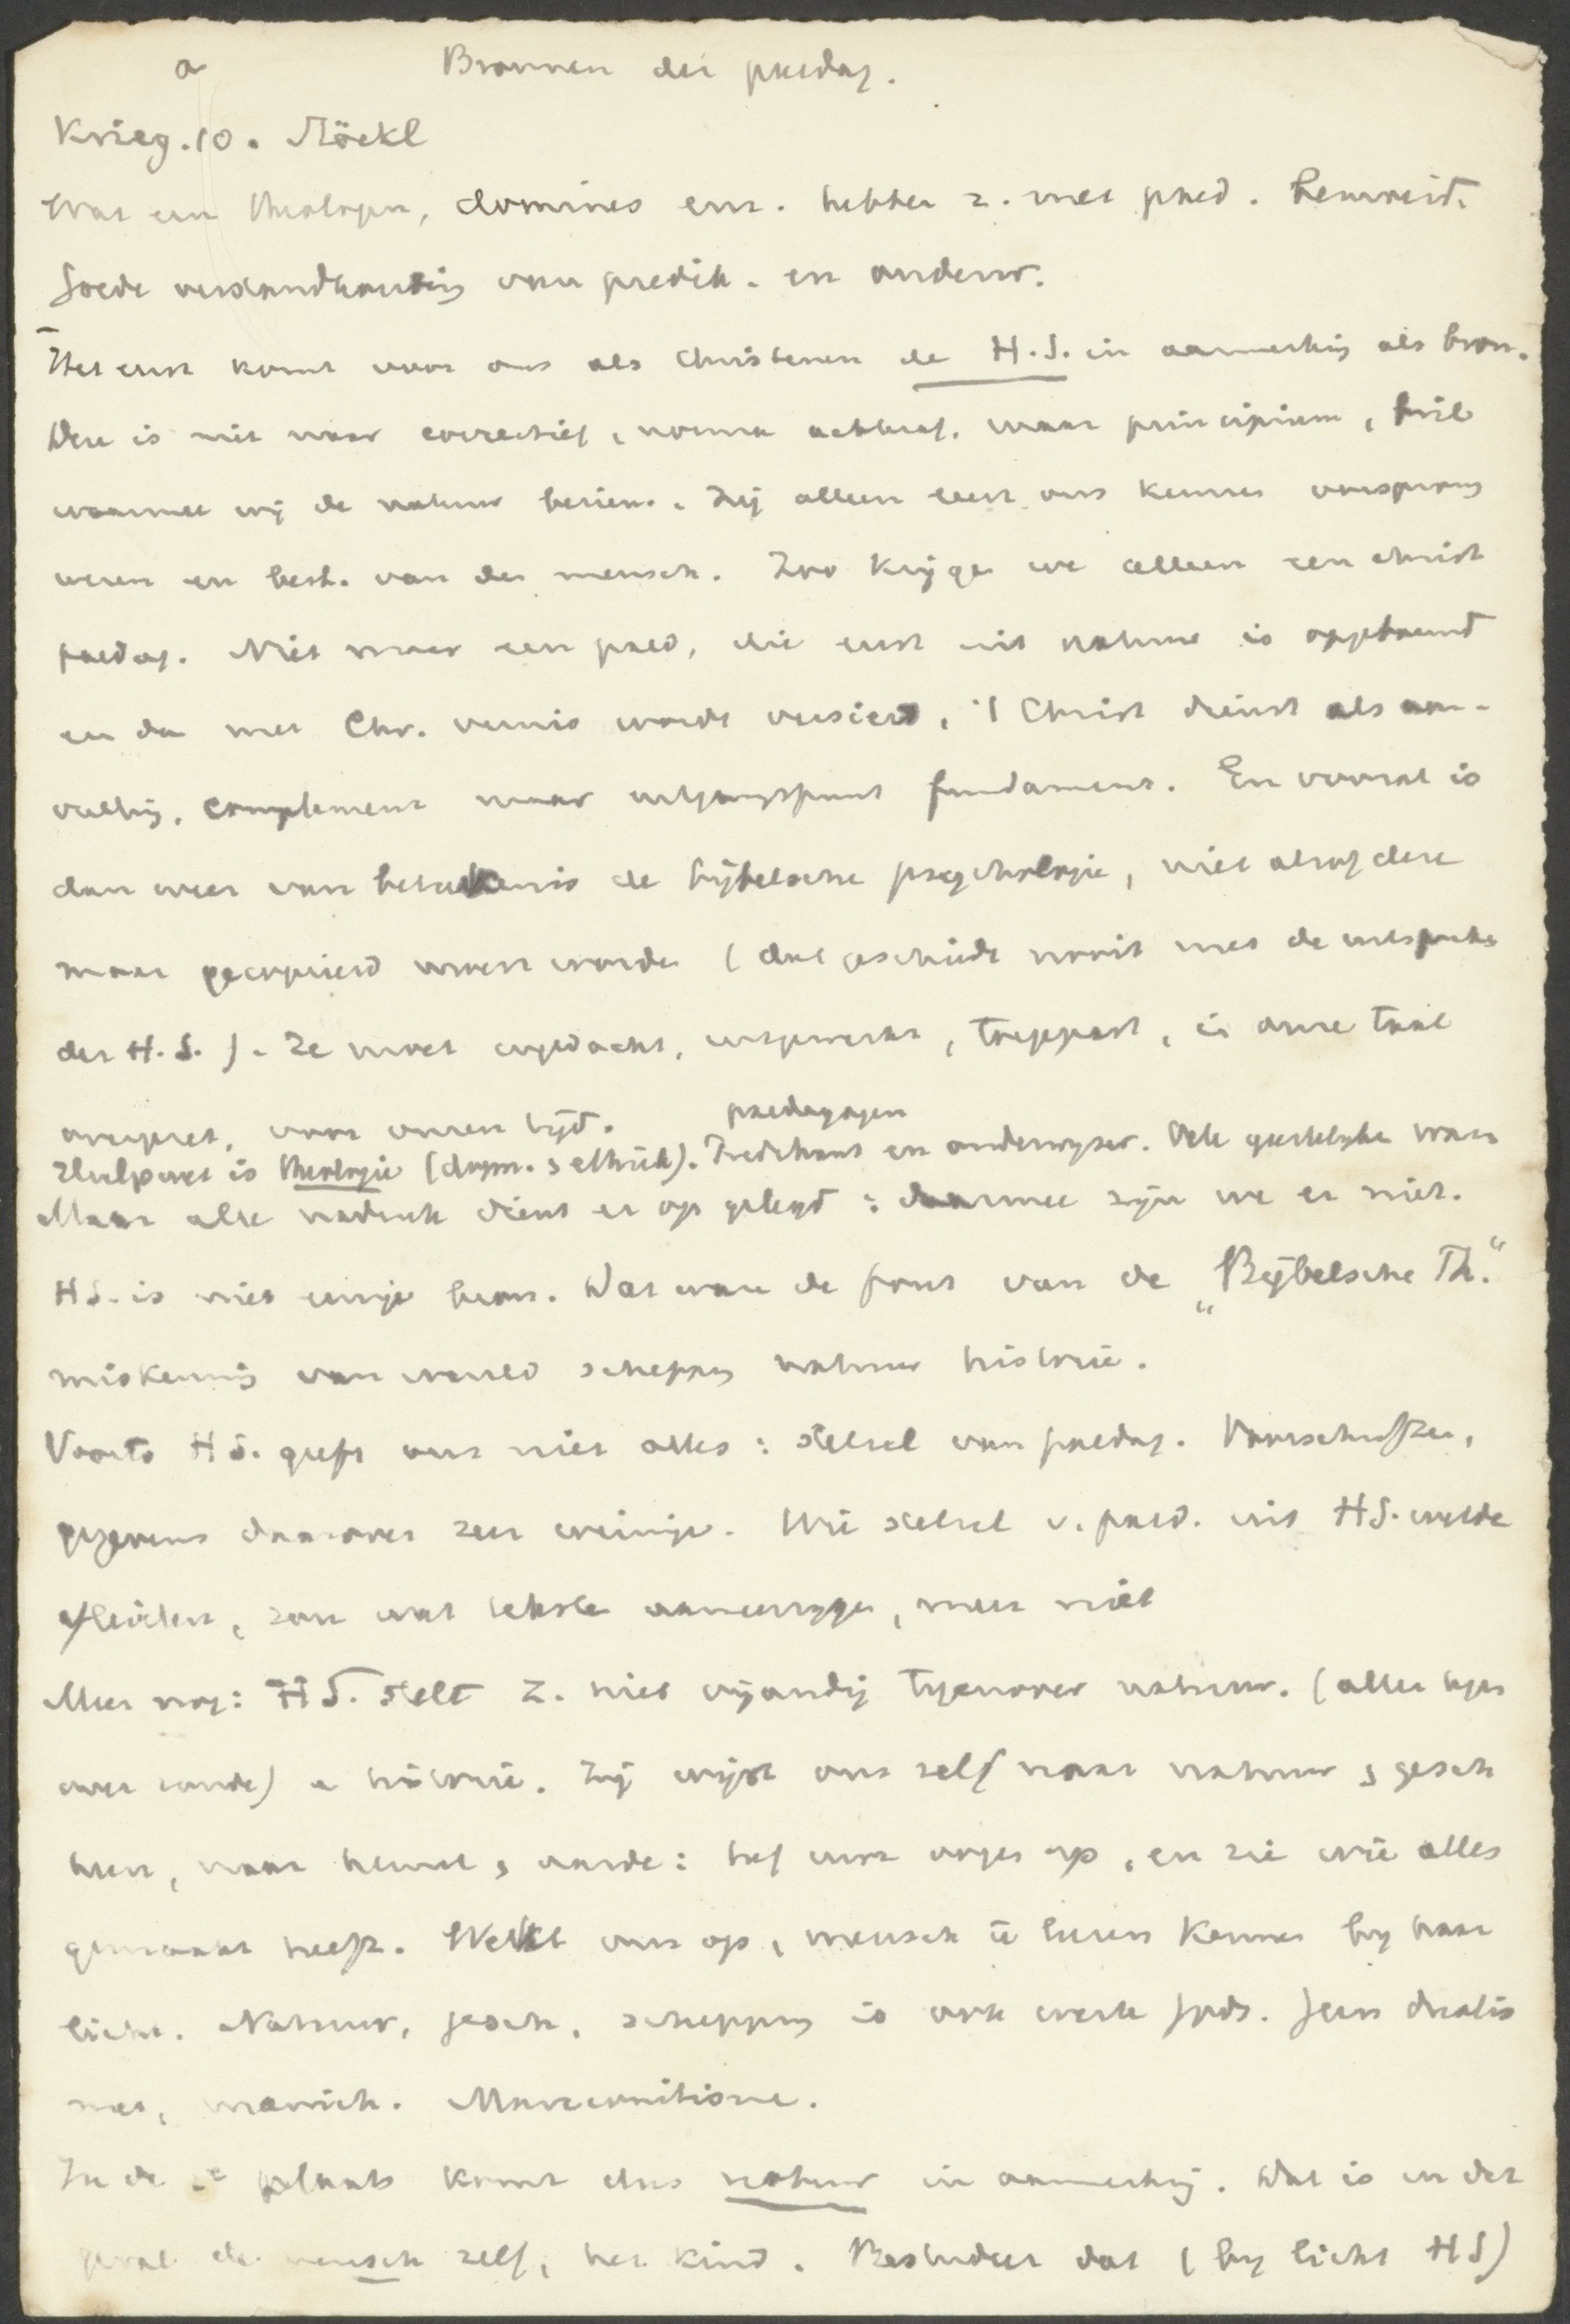 a Bronnen der paedag.
Krieg. 10. Stöckl
Wat een theologen, dominees enz. hebben z. met paed. bemoeid.
Goede verstandhouding van predik. en onderw.
Het eerst komt voor ons als Christenen de H.S. in aanmerking als bron.
Deze is niet maar correctief, norma maar principium, bril
waarmee wij de natuur bezien. Zij alleen leert ons kennen oorsprong
wezen en best. van den mensch. Zoo krijgen we alleen een christ
paedag. Niet maar een paed, die eerst uit natuur is opgebouwd
en dan met Chr. vernis wordt versierd, 't Christ dient als aan-
vulling, complement maar uitgangspunt fundament. En vooral is
dan weer van beteekenis de bijbelsche psychologie, niet alsof deze
maar gecopieerd moest worden (dat geschiedt nooit met de uitspraken
der H.S.). Ze moet ingedacht, uitgewerkt, toegepast, in onze taal
overgezet, voor onzen tijd. paedagogen
Hulpvak is theologie (dogm. & ethiek). Predikant en onderwijzer. Vele geestelijken waren
Maar alle nadruk dient er op gelegd: daarmee zijn we er niet.
HS. is niet eenige bron. Dat was de fout van de „Bijbelsche Th."
miskenning van wereld schepping natuur historie.
Voorts HS. geeft ons niet alles: stelsel van paedag. Voorschriften,
gegevens daarover zeer weinige. Wie stelsel v. paed. uit HS. wilde
afleiden, zou wat teksten aaneenrijgen, meer niet
Meer nog: HS. stelt z. niet vijandig tegenover natuur. (alleen tegen
over zonde) en historie. Zij wijst ons zelf naar natuur & gesch
heen, naar hemel & aarde: hef uwe oogen op, en zie wie alles
gemaakt heeft. Wekt ons op, mensch te leeren kennen bij haar
licht. Natuur, gesch. schepping is ook werk Gods. Geen dualis
me, manich. Marcionitisme.
In de 2e plaats komt dus natuur in aanmerking. Dat is in dit
geval de mensch zelf, het kind. Bestudeer dat (bij licht HS)